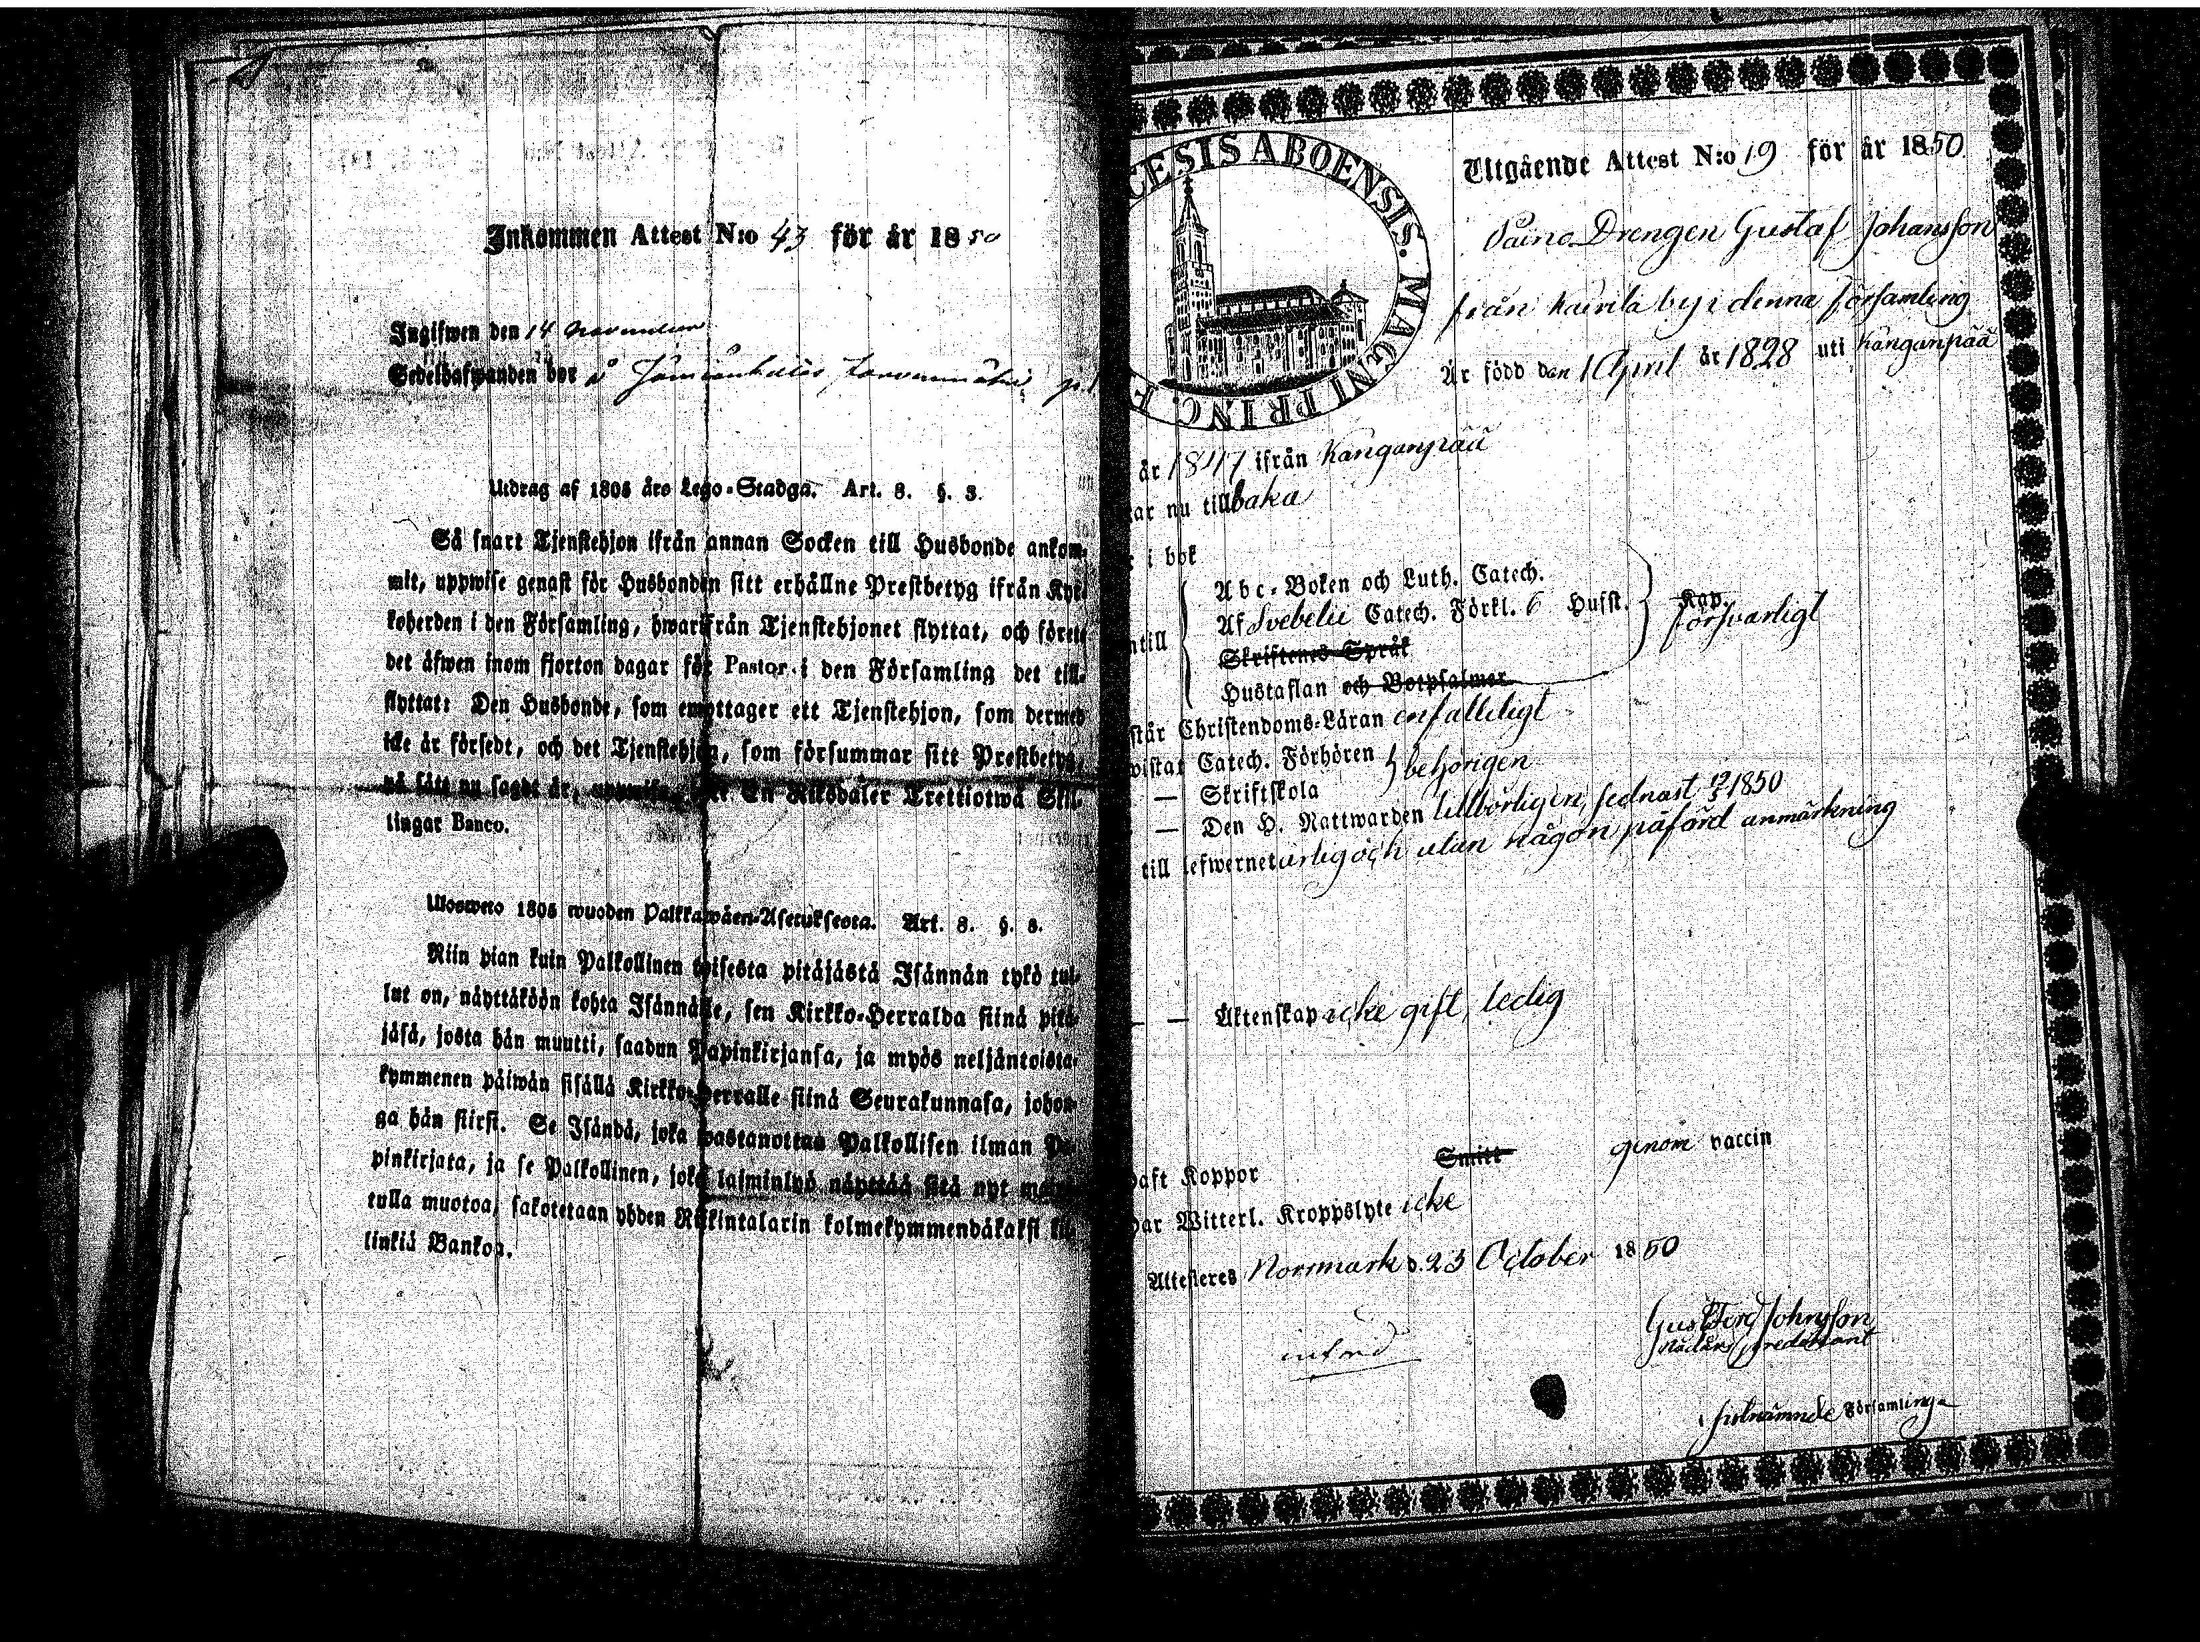 Inkommen Attest N:o 43 för år 1850
Ingifwen den 14 November
Sedelhafwanden bor å
Utdrag af 1805 års Lego-Stadga. Art. 8. §. 3.
Så snart Tjenstehjon ifrån annan Socken till Husbonde ankom-
mit, uppwise genast för Husbonden sitt erhållne Prestbetyg ifrån Kyr-
koherden i den Församling, hwarifrån Tjenstehjonet flyttat, och förete
det äfwen inom fjorton dagar för Pastor i den Församling det till-
flyttat: Den Husbonde, som emottager ett Tjenstehjon, som dermed
icke är försedt, och det Tjenstehjon, som försummar sitt Prestbetyg,
på sätt nu sagdt är, uppwisa, En Riksdaler Trettiotwå Skil-
lingar Banco.
Ulosweto 1805 wuoden Palkkawäen-Asetuksesta. Art. 8. §. 3.
Niin pian kuin Palkollinen toisesta pitäjästä Isännän tykö tul-
lut on, näyttäköön kohta Isännälle, sen Kirkko-Herralda siinä pitä-
jäsä, josta hän muutti, saadun Papinkirjansa, ja myös neljäntoista-
kymmenen päiwän sisällä Kirkko-Herralle siinä Seurakunnasa, johon-
ga hän siirsi. Se Isändä, joka wastanottaa Palkollisen ilman Pa-
pinkirjata, ja se Palkollinen, joka laiminlyö näyttää sitä nyt
tulla muotoa, sakotetaan yhden Riikintalarin kolmekymmendäkaksi kil-
linkiä Bankoa.
CESIS ABOENSIS. MAGNI PRINC. F
Utgående Attest N:o 19 för år 1850
Drengen Gustaf Johansson
från Kairila by i denna församling
Är född den 1 April år 1828 uti Kanganpää
år 1847 ifrån Kanganpää
ar nu tillbaka
i bok
ntill
Abc-Boken och Luth. Catech.
Af Svebelii Catech. Förkl. 6 Hufst.
Skriftenes Språk
Hustaflan och Botpsalmer
försvarligt
står Christendoms-Läran enfalleligt
wistat Catech. Förhören
— Skriftskola
behörigen
— Den H. Nattwarden tillbörligen, sednast 12/5 1850
till lefwernet ärlig och utan någon påförd anmärkning
— — Äktenskap icke gift, ledig
haft Koppor Smitt genom vaccin
har Witterl. Kroppslyte icke
Attesteres Norrmark d. 23 October 1850
Gust Ferd Johnsson
Nådårs predikant
i förbenämnde Församling